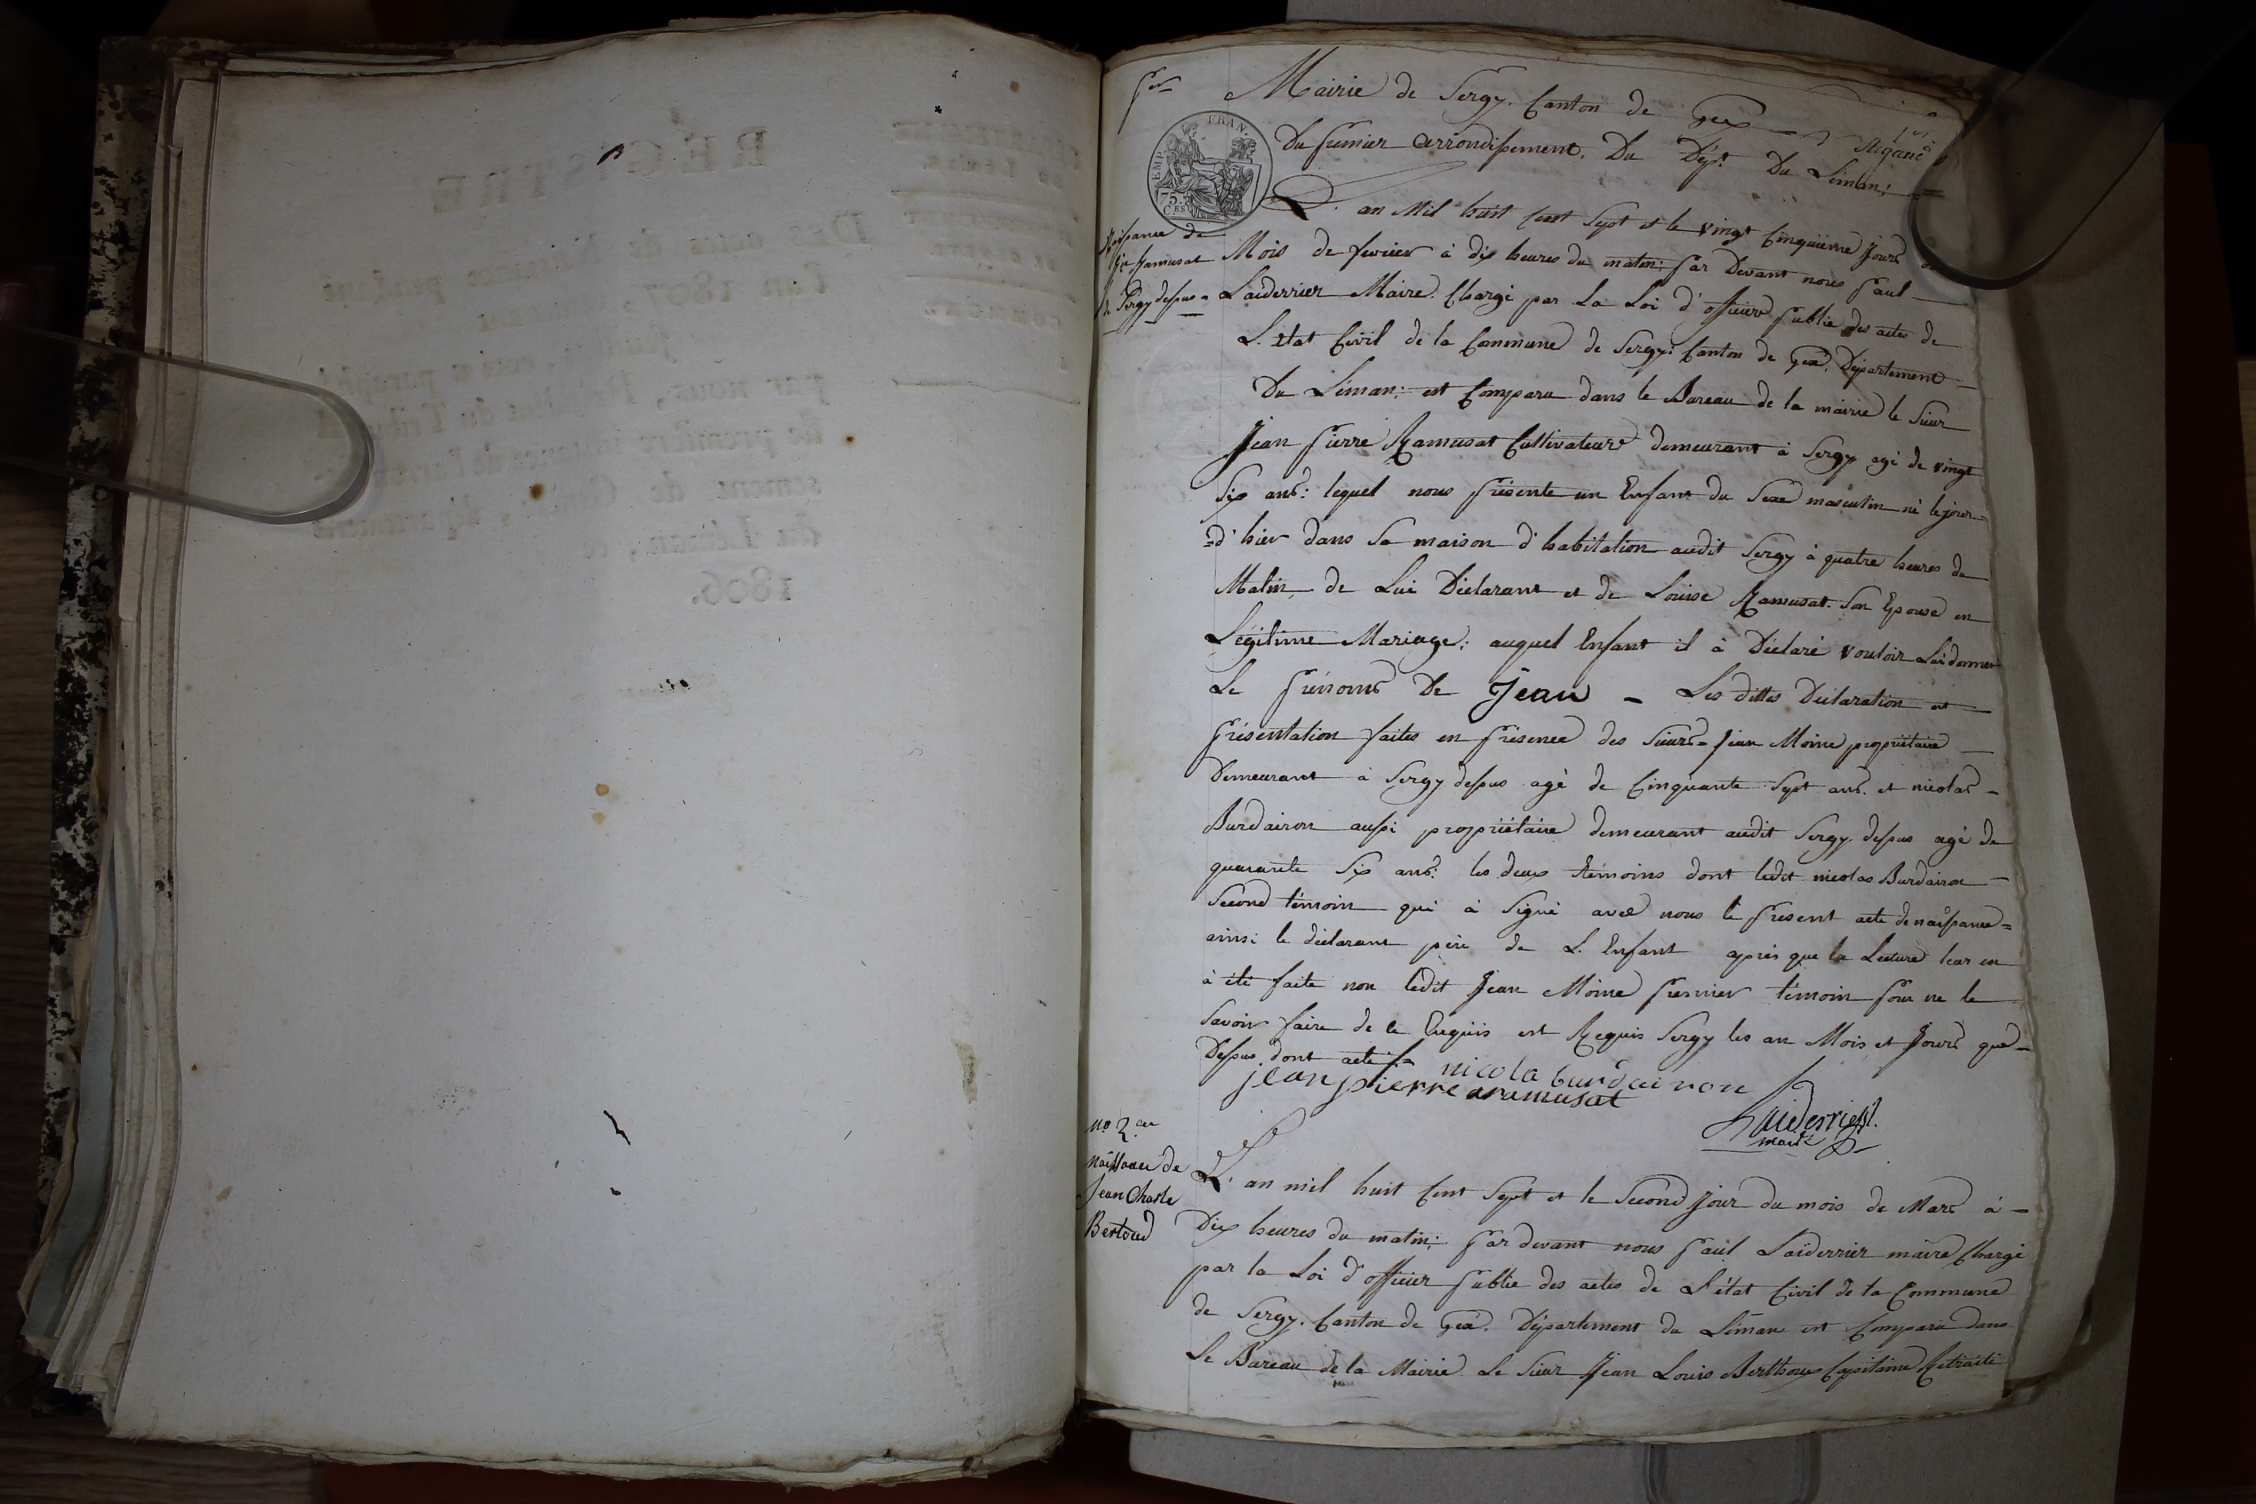 Mairie de Sergy. Canton de Gex
Du premier arrondissement. Du Dépt. Du Léman;
EMP. FRAN.
75 Ces
Naissance de
Jn Ramusat
de Sergy dessus
L'an Mil huit Cent Sept et le vingt Cinquième Jours du
Mois de fevrier à dix heures du matin; par Devant nous paul
Laiderrier Maire. Chargé par La Loi d'officier public des actes de
L. état Civil de la Commune de Sergy: Canton de Gex. Département
Du Léman; est Comparu dans le Bureau de la mairie le Sieur
Jean pierre Ramusat Cultivateur demeurant à Sergy agé de vingt
Six ans: lequel nous présente un Enfant du Sexe masculin né le jour
=d'hier dans Sa maison d'habitation audit Sergy à quatre heures du
Matin, de Lui Déclarant et de Louise Ramusat. Son Epouse en
Légitime Mariage; auquel Enfant il à Déclaré vouloir Lui donner
Le prénoms De Jean - Les dittes Déclaration et
présentation faites en présence des Sieurs = Jean Moine propriétaire
Demeurant à Sergy dessus agé de Cinquante Sept ans. et nicolas -
Burdairon aussi propriétaire demeurant audit Sergy dessus agé de
quarante Six ans: les deux témoins dont ledit nicolas Burdairon
Second témoin qui à Signé avec nous le présent acte de naissance =
ainsi le déclarant père de L. Enfant après que la Lecture leur en
à été faite non ledit Jean Moine premier témoin pour ne le
Savoir faire de ce Enquis et Requis Sergy les an Mois et Jours que
Dessus, dont acte
nicola burdairon
jean pierre aramusat
Laiderrier
maire
No 2
naissance de
Jean Charle
Bertoud
L'an mil huit Cent Sept et le Second Jour du mois de Mars à -
Dix heures du matin; par devant nous paul Laiderrier maire Chargé
par la Loi d'officier public des actes de L'état Civil de la Commune
de Sergy. Canton de Gex. Département du Léman est Comparu dans
Le Bureau de la Mairie Le Sieur Jean Louis Berthoux Capitaine Retraité
REGISTRE
Des actes de Naissance
l'an 1807
par nous, Président du Tribunal
de première instance
du Léman, le
1806.